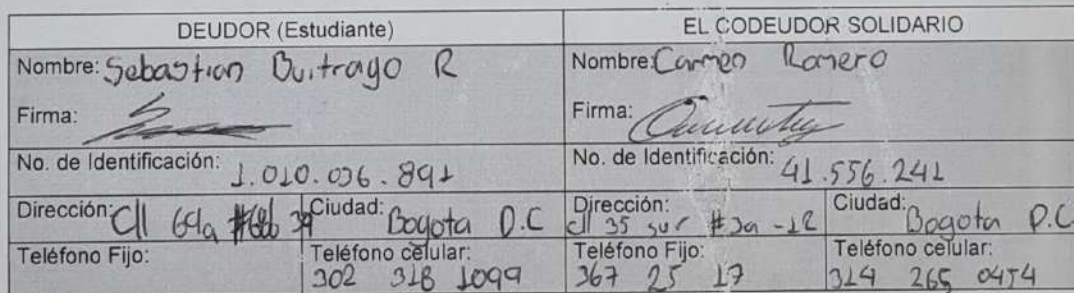 DEUDOR (Estudiante)
EL CODEUDOR SOLIDARIO
Nombre: Sebastian Buitrago R
Nombre: Carmen Romero
Firma:
Firma:
No. de Identificación: 1.010.036.891
No. de Identificación: 41.556.241
Dirección: Cll 69a
Ciudad: Bogota D.C
Dirección: cll 35 sur #3a -12
Ciudad: Bogota D.C
Teléfono Fijo:
Teléfono celular: 302 318 1099
Teléfono Fijo: 367 25 17
Teléfono celular: 314 265 0454